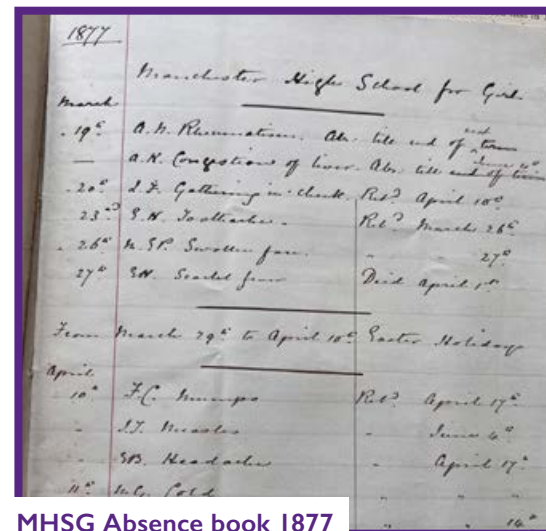 1877
Manchester High School for Girls
March
19th A.N. Rheumatism. Abs. till end of term
— A.K. Congestion of liver. Abs. till end of term
20th J.F. Gathering in cheek. Retd April 10th
23rd E.H. Toothache. Retd March 26th
26th M.SP. Swollen face. " 27th
27th EH. Scarlet fever Died April 1st
From March 29th to April 10th Easter Holidays
April
10th F.C. Mumps Retd April 17th
" J.T. Measles " June 4th
" EB. Headache " April 17th
11th M.G. Cold " " 16th
MHSG Absence book 1877